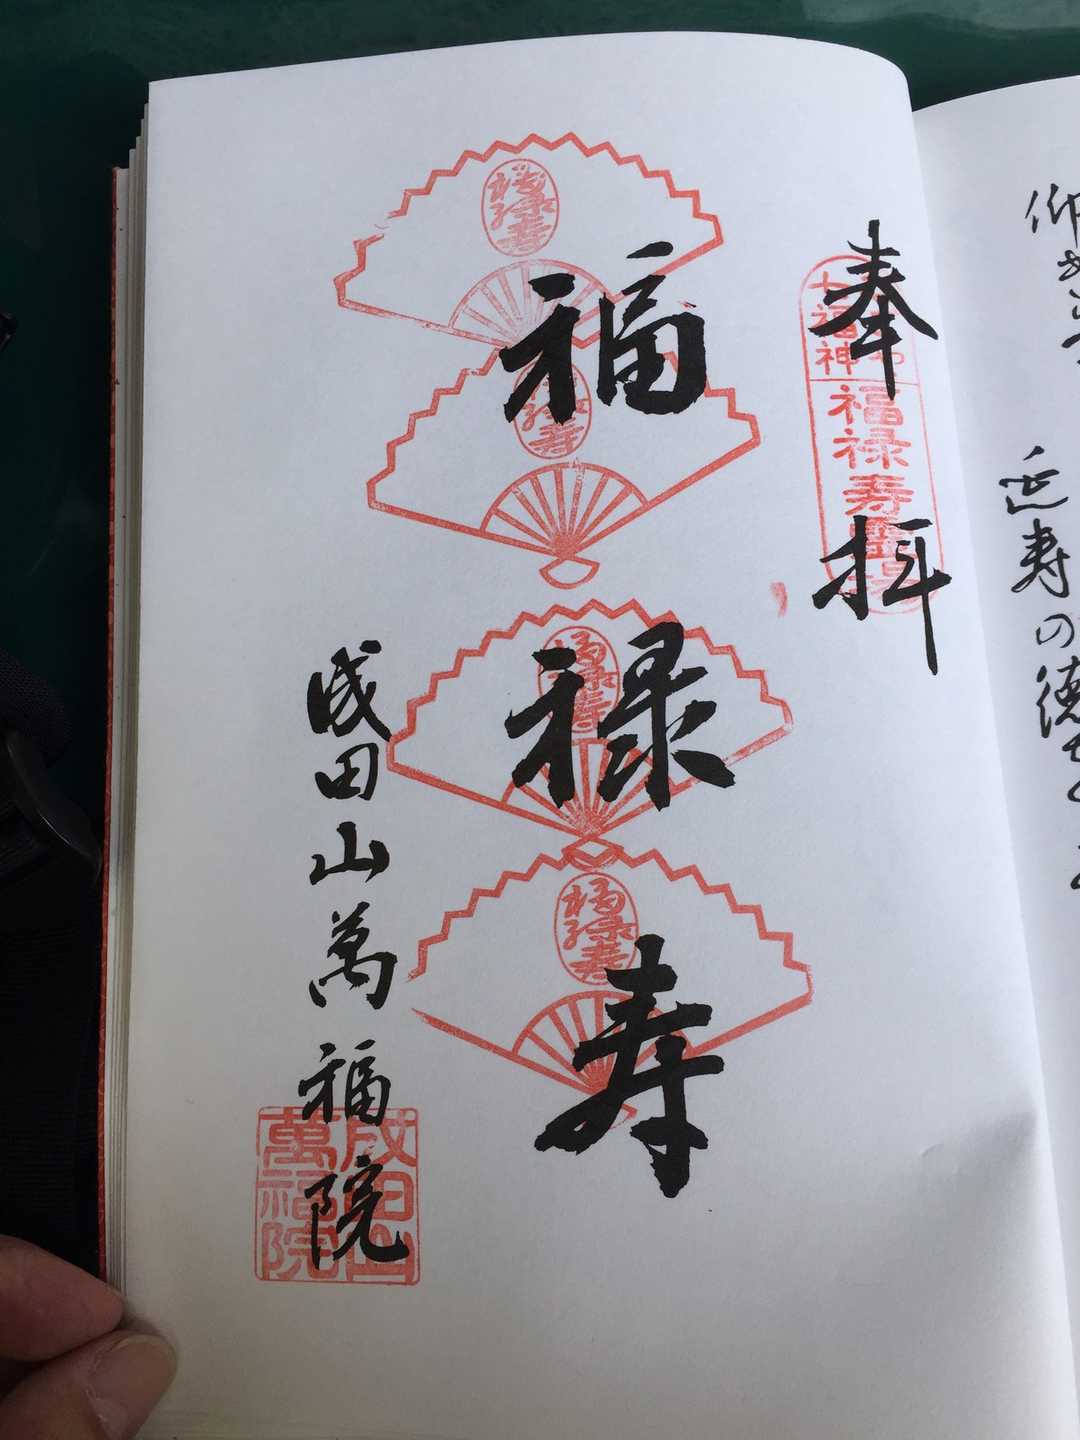 延寿の徳
奉拝
七福神
福禄寿霊場
福禄寿
福禄寿
福禄寿
福禄寿
福禄寿
成田山萬福院
成田山
萬福院